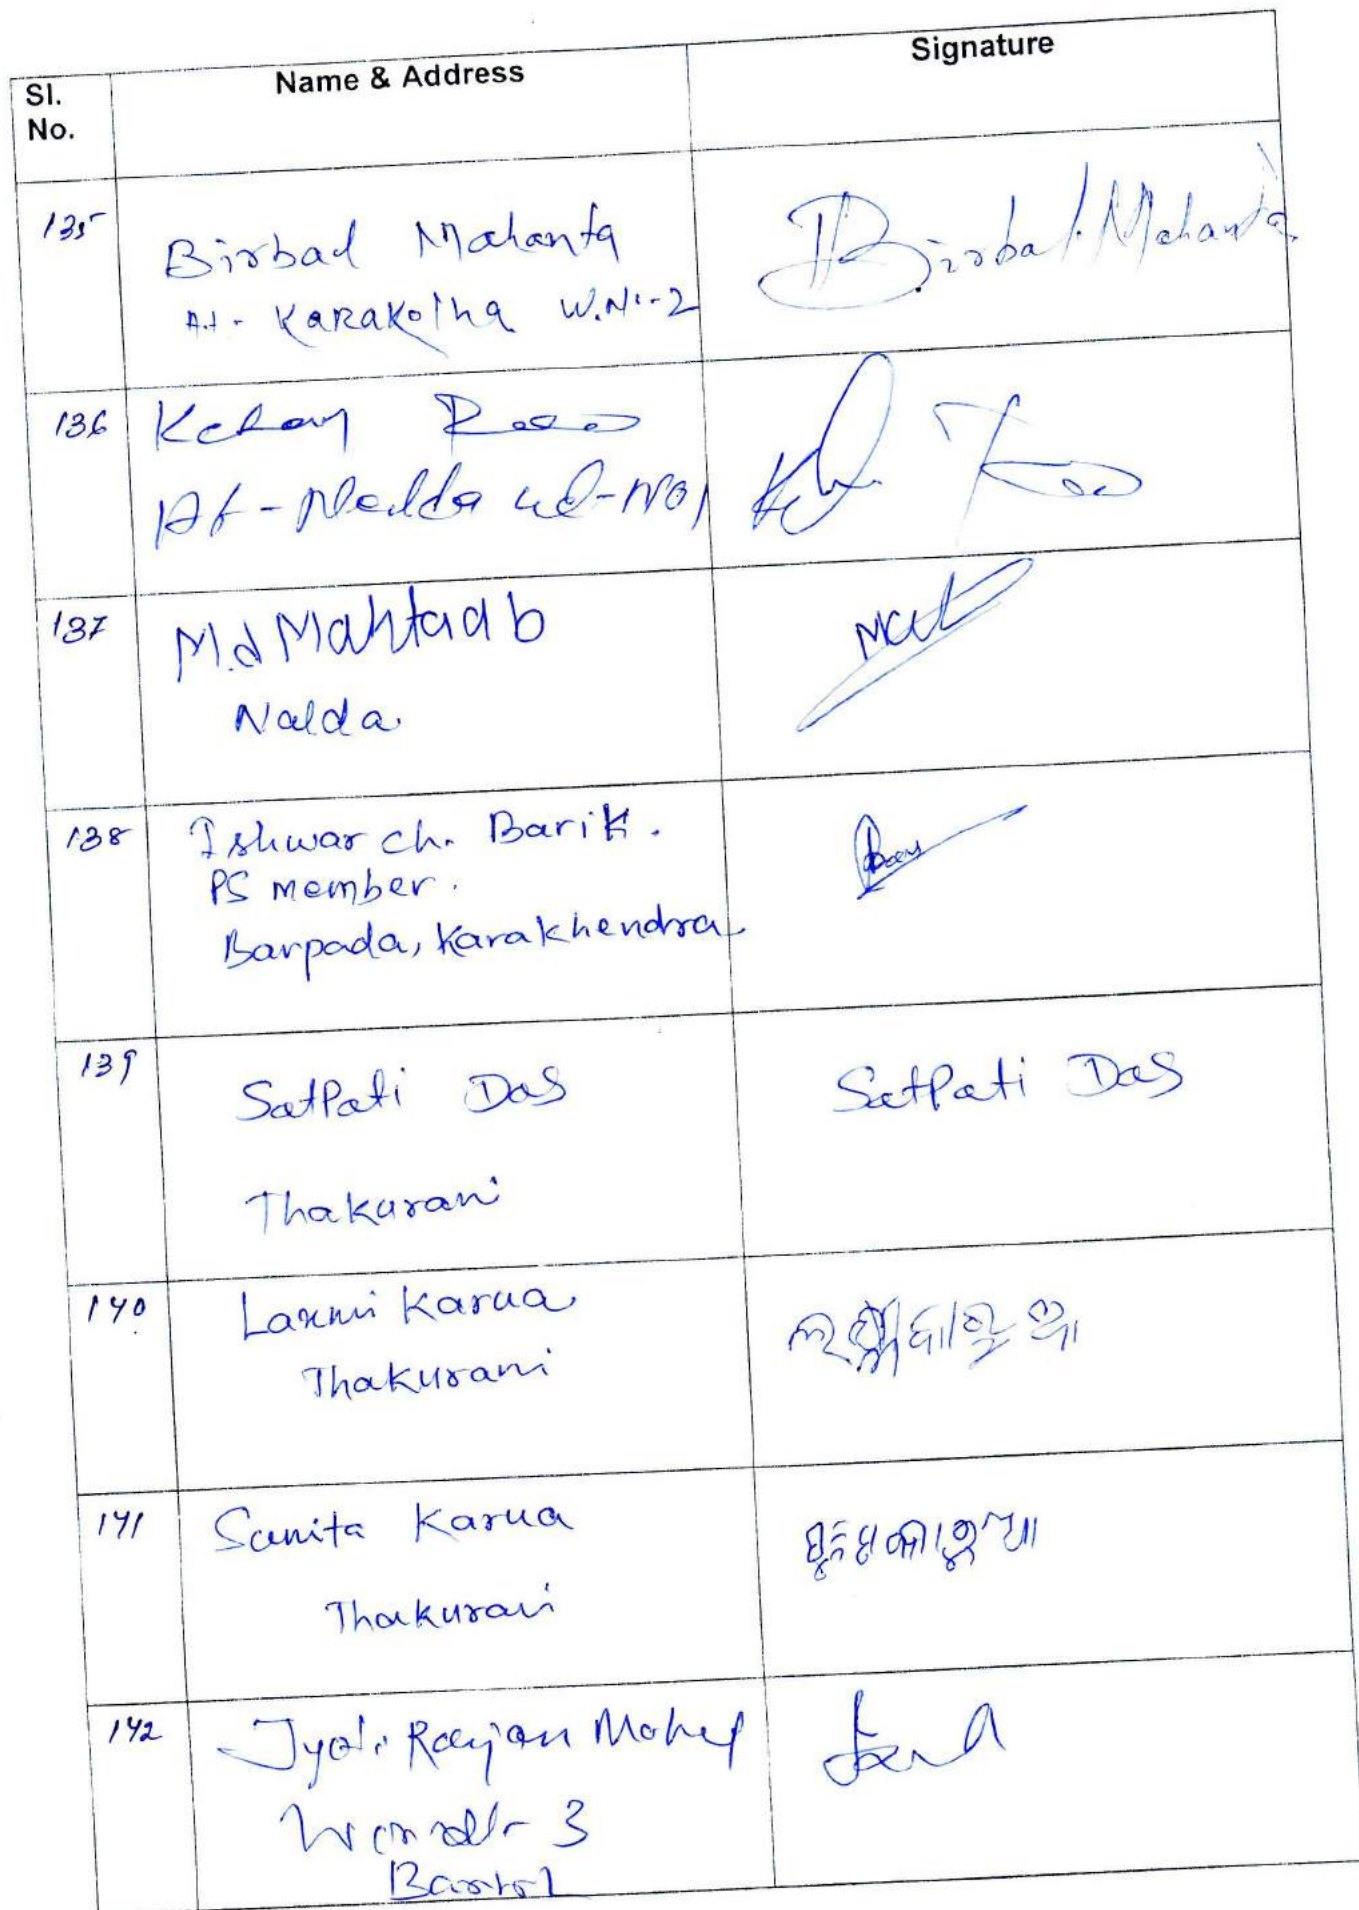 Sl.
No.
Name & Address
Signature
135
Birbal Mahanta
At- KARAKOlha W.No-2
Birbal Mahanta
136
At- Nalda wd-NO1
137
M.d Mahtaab
Nalda
138
Ishwar ch. Barik.
PS member.
Barpada, Karakhendra
139
SatPati Das
Thakurani
SatPati Das
140
Laxmi Karua
Thakurani
141
Sunita Karua
Thakurani
142
Jyoti Ranjan Mohap
3